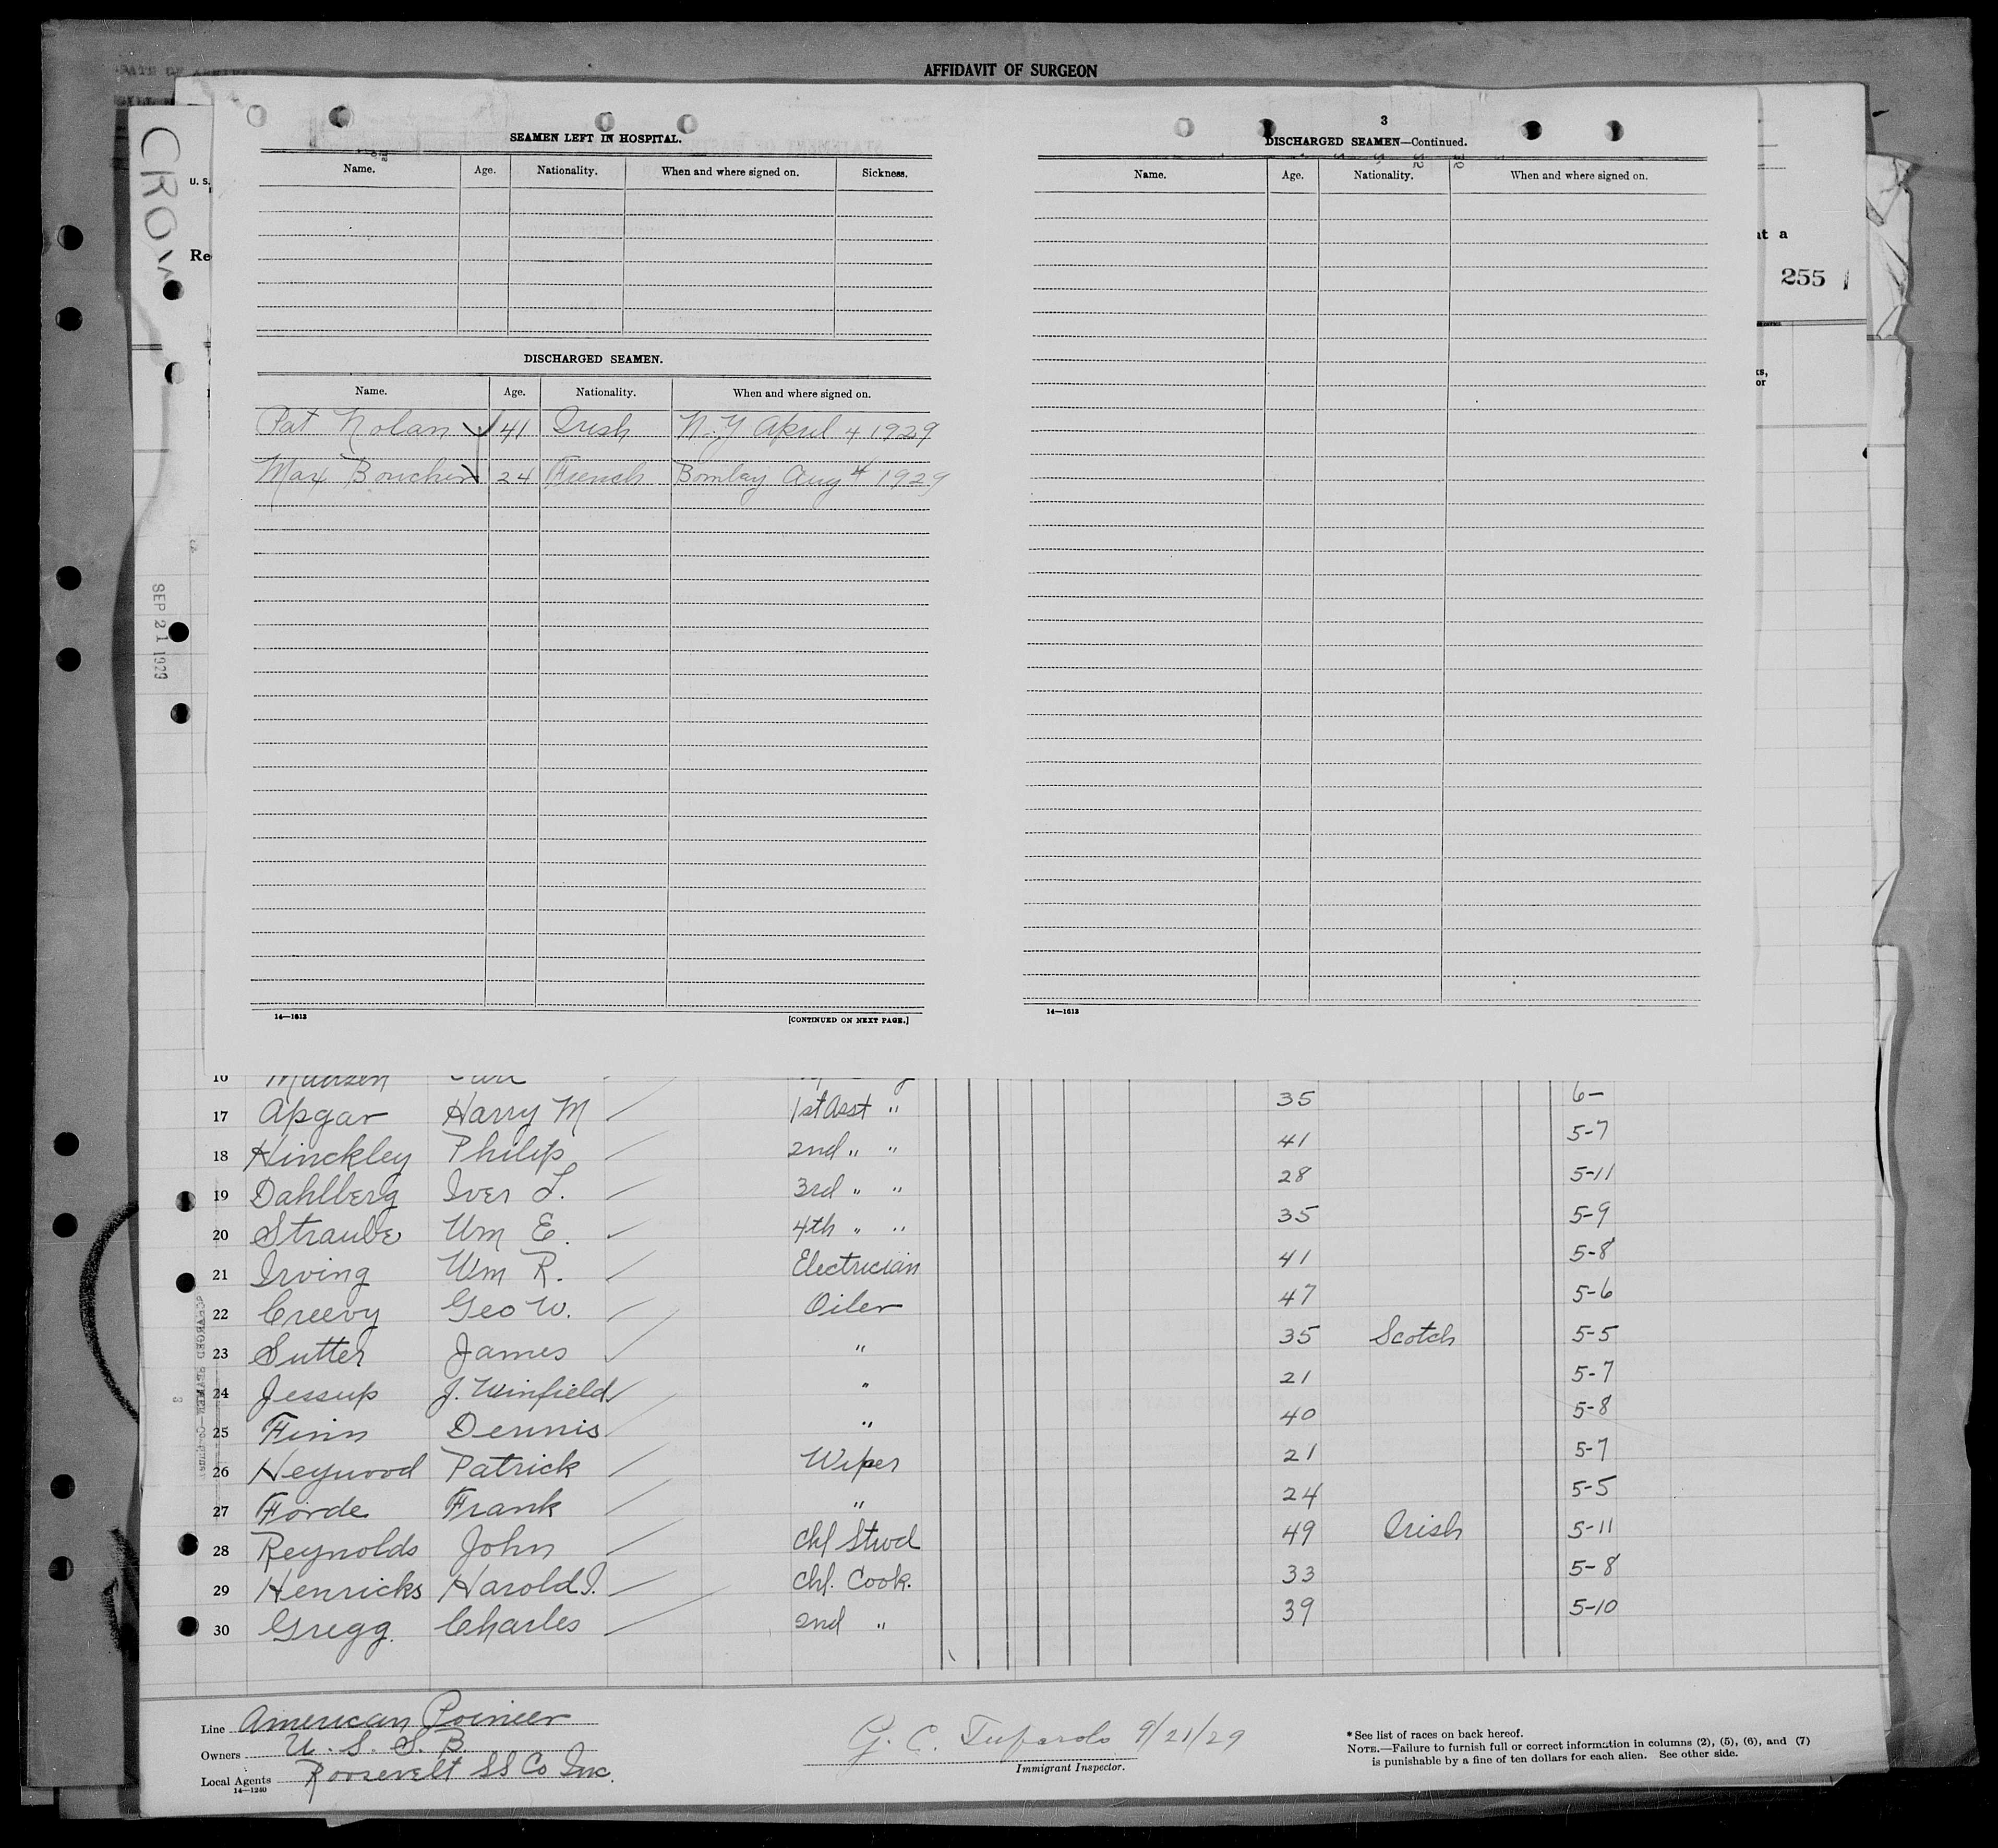 AFFIDAVIT OF SURGEON
CROW
U. S.
Re
at a
255
SEP 21 1929
SEAMEN LEFT IN HOSPITAL.
Name. Age. Nationality. When and where signed on. Sickness.
DISCHARGED SEAMEN.
Name. Age. Nationality. When and where signed on.
Pat Nolan 41 Irish N.Y April 4 1929
Max Boucher 24 French Bombay Aug 4 1929
14—1613 [CONTINUED ON NEXT PAGE.]
3
DISCHARGED SEAMEN—Continued.
Name. Age. Nationality. When and where signed on.
14—1613
16
17 Apgar Harry M 1st Asst " 35 6-
18 Hinckley Philip 2nd " " 41 5-7
19 Dahlberg Iver L. 3rd " " 28 5-11
20 Straube Wm E. 4th " " 35 5-9
21 Irving Wm R. Electrician 41 5-8
22 Creevy Geo W. Oiler 47 5-6
23 Sutter James " 35 Scotch 5-5
24 Jessup J. Winfield " 21 5-7
25 Finn Dennis " 40 5-8
26 Heywood Patrick Wiper 21 5-7
27 Forde Frank " 24 5-5
28 Reynolds John Chf Stwd 49 Irish 5-11
29 Henricks Harold J. Chf. Cook. 33 5-8
30 Gregg Charles 2nd " 39 5-10
Line American Poineer
Owners U. S. S. B.
Local Agents Roosevelt SS Co Inc.
14—1240
G. C. Tufarolo 9/21/29
Immigrant Inspector.
* See list of races on back hereof.
NOTE.—Failure to furnish full or correct information in columns (2), (5), (6), and (7)
is punishable by a fine of ten dollars for each alien. See other side.